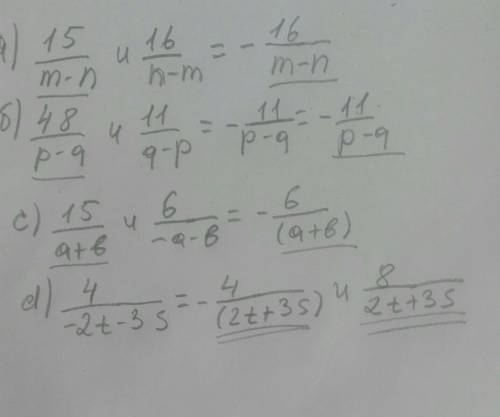 а) 15/(m-n) и 16/(n-m) = - 16/(m-n)
б) 48/(p-q) и 11/(q-p) = - 11/(p-q) = - 11/(p-q)
c) 15/(a+b) и 6/(-a-b) = - 6/(a+b)
d) 4/(-2t-3s) = - 4/(2t+3s) и 8/(2t+3s)